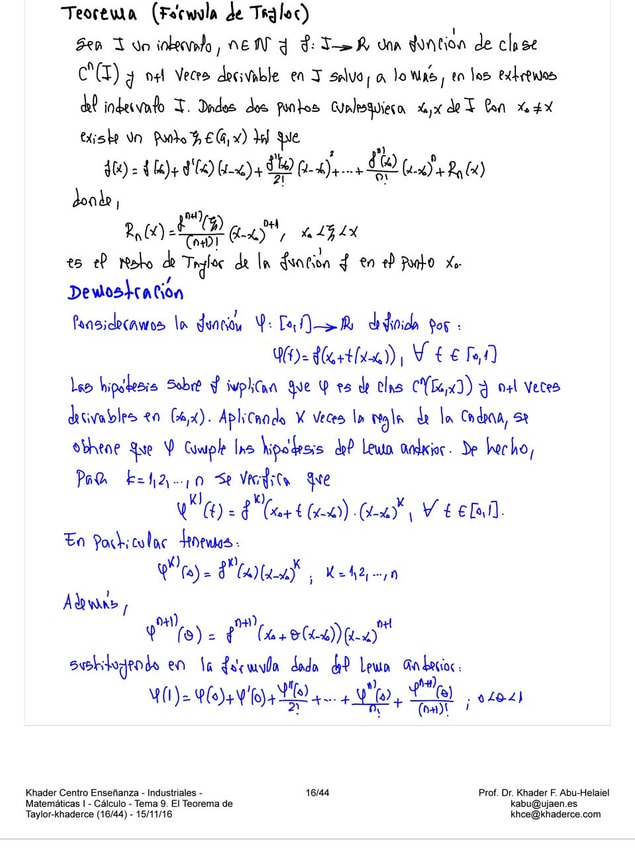 Teorema (Fórmula de Taylor)
Sea I un intervalo, n∈N y f: I→R una función de clase
Cⁿ(I) y n+1 veces derivable en I salvo, a lo más, en los extremos
del intervalo I. Dados dos puntos cualesquiera x₀, x de I con x₀ ≠ x
existe un punto ξ ∈ (a, x) tal que
f(x) = f(x₀) + f'(x₀)(x-x₀) + f''(x₀)/2! (x-x₀)² + ... + fⁿ⁾(x₀)/n! (x-x₀)ⁿ + Rₙ(x)
donde,
Rₙ(x) = fⁿ⁺¹⁾(ξ)/(n+1)! (x-x₀)ⁿ⁺¹, x₀ < ξ < x
es el resto de Taylor de la función f en el punto x₀.
Demostración
Consideramos la función φ: [0,1] → R definida por:
φ(t) = f(x₀+t(x-x₀)), ∀ t ∈ [0,1]
Las hipótesis sobre f implican que φ es de clas Cⁿ([x₀,x]) y n+1 veces
derivables en (x₀,x). Aplicando K veces la regla de la cadena, se
obtiene que φ cumple las hipótesis del Lema anterior. De hecho,
Para k=1,2,...,n se verifica que
φᴷ⁾(t) = fᴷ⁾(x₀+t(x-x₀)).(x-x₀)ᴷ, ∀ t ∈ [0,1].
En particular tenemos:
φᴷ⁾(0) = fᴷ⁾(x₀)(x-x₀)ᴷ ; K=1,2,...,n
Además,
φⁿ⁺¹⁾(θ) = fⁿ⁺¹⁾(x₀+θ(x-x₀))(x-x₀)ⁿ⁺¹
sustituyendo en la fórmula dada del Lema anterior:
φ(1) = φ(0) + φ'(0) + φ''(0)/2! + ... + φⁿ⁾(0)/n! + φⁿ⁺¹⁾(θ)/(n+1)! ; 0<θ<1
Khader Centro Enseñanza - Industriales -
Matemáticas I - Cálculo - Tema 9. El Teorema de
Taylor-khaderce (16/44) - 15/11/16
16/44
Prof. Dr. Khader F. Abu-Helaiel
kabu@ujaen.es
khce@khaderce.com